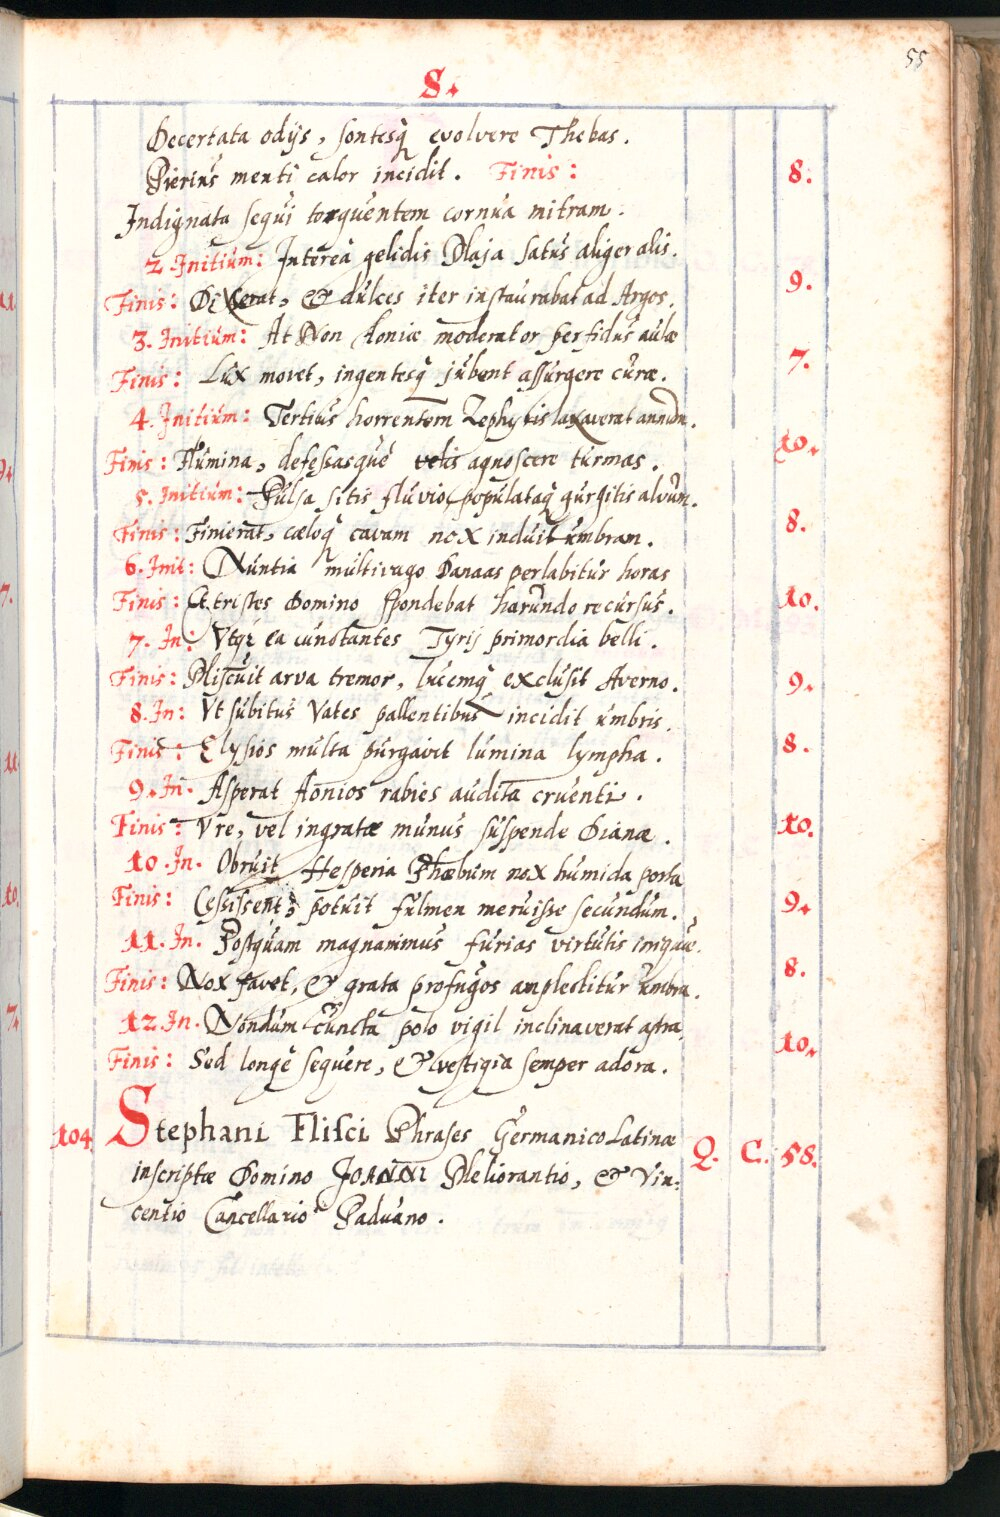 55
S.
Decertata odijs, sontesq̃ evolvere Thebas.
Pierius menti calor incidit. Finis: 8.
Indignata sequi torquentem cornua mitram.
2. Initium: Interea gelidis Maja satus aliger alis.
Finis: Dixerat, & dulces iter instaurabat ad Argos. 9.
3. Initium: At Non Aoniæ moderator perfidus aulæ
Finis: Lux movet, ingentesq̃ jubent assurgere curæ. 7.
4. Initium: Tertius horrentem Zephyris laxaverat annum.
Finis: Flumina, defessasque velis agnoscere turmas. 10.
5. Initium: Pulsa sitis fluvio, populataq̃ gurgitis alvum.
Finis: Finierat, cæloq̃ cavam nox induit umbram. 8.
6. Init: Nuntia multivago Danaas perlabitur horas
Finis: Et tristes Domino spondebat harundo recursus. 10.
7. In: Atqȝ ea cunctantes Tyrij primordia belli.
Finis: Miscuit arva tremor, lucemq̃ exclusit Averno. 9.
8. In: Vt subitus Vates pallentibus incidit umbris.
Finis: Elysios multa purgavit lumina lympha. 8.
9. In. Asperat Aonios rabies audita cruenti.
Finis: Vre, vel ingratæ munus suspende Dianæ. 10.
10. In. Obruit Hesperia Phæbum nox humida porta
Finis: Cessissent; potuit fulmen meruisse secundum. 9.
11. In. Postquam magnanimus furias virtutis iniquæ.
Finis: Nox favet, & grata profugos amplectitur umbra. 8.
12. In. Nondum cuncta polo vigil inclinaverat astra,
Finis: Sed longè sequere, & vestigia semper adora. 10.
104. Stephani Flisci Phrases Germanico Latinæ Q. C. 58.
inscriptæ Domino JOANNI Meliorantio, & Vin:
centio Cancellario Paduano.